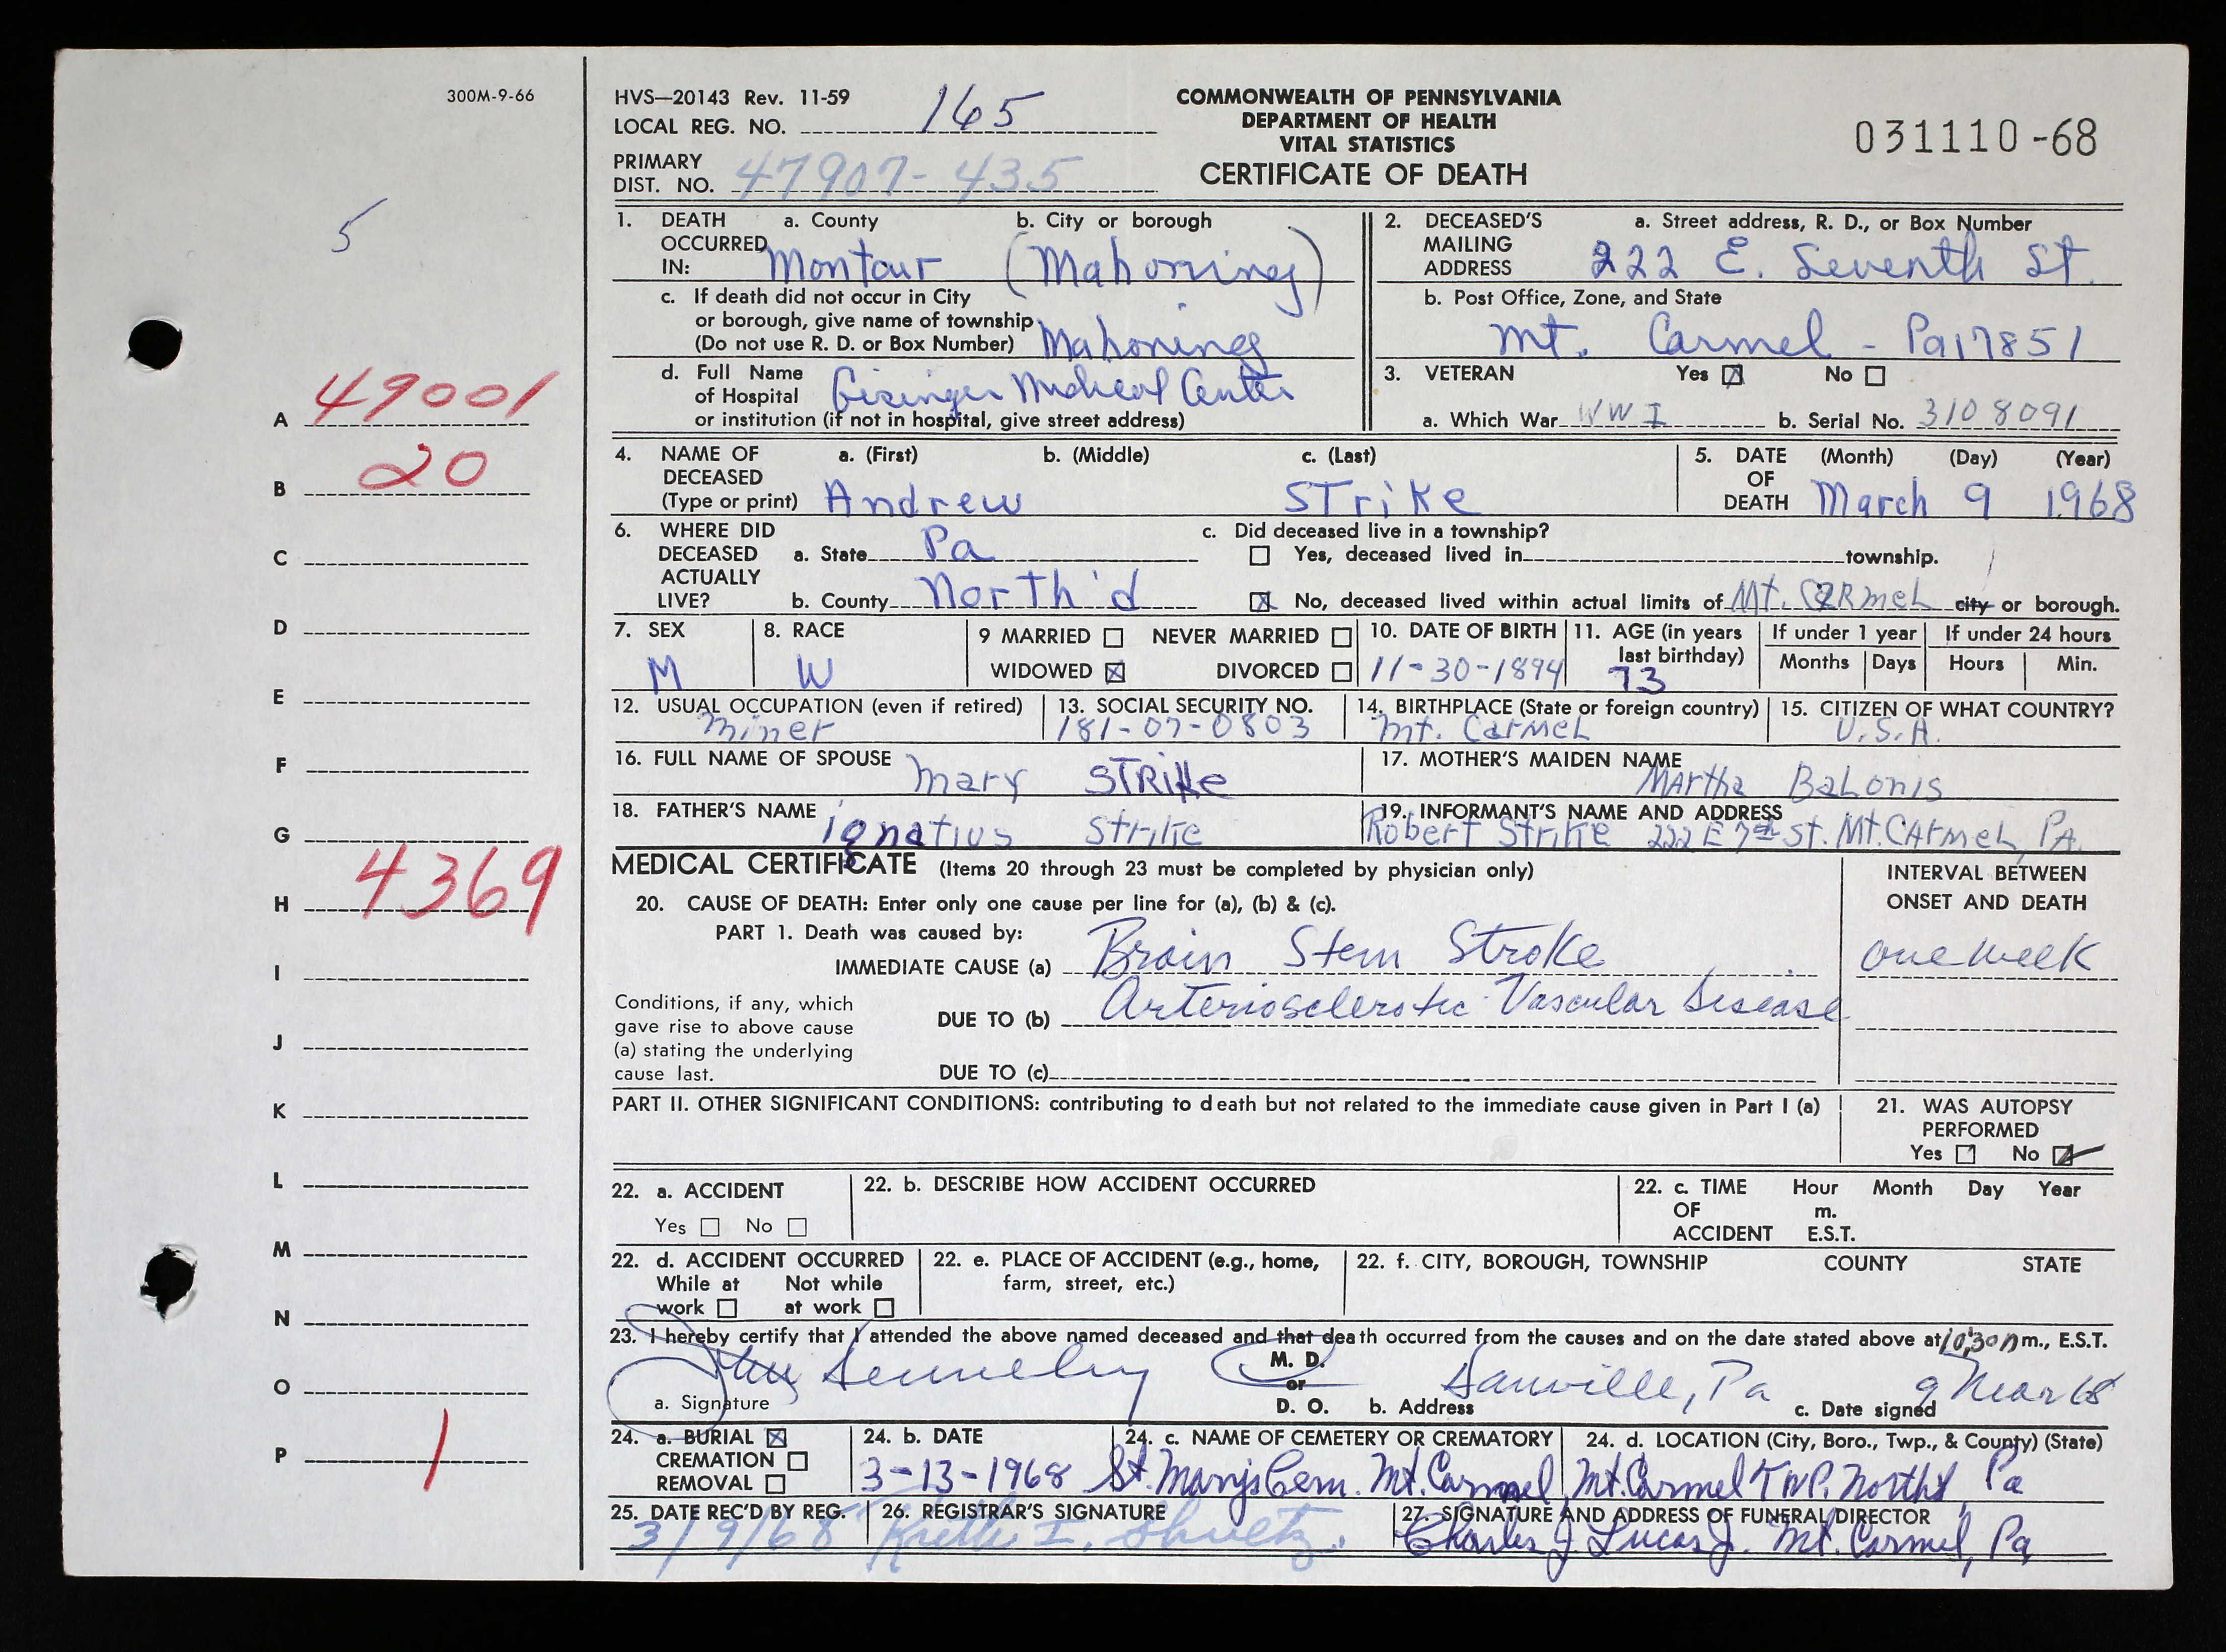 300M-9-66
HVS—20143 Rev. 11-59
LOCAL REG. NO. 165
PRIMARY DIST. NO. 47907-435
COMMONWEALTH OF PENNSYLVANIA
DEPARTMENT OF HEALTH
VITAL STATISTICS
CERTIFICATE OF DEATH
031110-68
5
A 49001
B 20
C
D
E
F
G
H 4369
I
J
K
L
M
N
O
P 1
1. DEATH OCCURRED IN: a. County Montour b. City or borough (Mahoning)
c. If death did not occur in City
or borough, give name of township
(Do not use R. D. or Box Number) Mahoning
d. Full Name
of Hospital Geisinger Medical Center
or institution (if not in hospital, give street address)
2. DECEASED'S MAILING ADDRESS a. Street address, R. D., or Box Number
222 E. Seventh St.
b. Post Office, Zone, and State
Mt. Carmel - Pa 17851
3. VETERAN Yes X No
a. Which War WW I b. Serial No. 3108091
4. NAME OF DECEASED (Type or print) a. (First) b. (Middle) c. (Last)
Andrew Strike
5. DATE OF DEATH (Month) (Day) (Year)
March 9 1968
6. WHERE DID DECEASED ACTUALLY LIVE? a. State Pa
b. County North'd
c. Did deceased live in a township?
Yes, deceased lived in township.
X No, deceased lived within actual limits of Mt. Carmel city or borough.
7. SEX M
8. RACE W
9 MARRIED NEVER MARRIED
WIDOWED X DIVORCED
10. DATE OF BIRTH 11-30-1894
11. AGE (in years last birthday) 73
If under 1 year Months Days
If under 24 hours Hours Min.
12. USUAL OCCUPATION (even if retired) Miner
13. SOCIAL SECURITY NO. 181-07-0803
14. BIRTHPLACE (State or foreign country) Mt. Carmel
15. CITIZEN OF WHAT COUNTRY? U.S.A.
16. FULL NAME OF SPOUSE Mary Strike
17. MOTHER'S MAIDEN NAME Martha Balonis
18. FATHER'S NAME Ignatius Strike
19. INFORMANT'S NAME AND ADDRESS
Robert Strike 222 E 7th St. Mt. Carmel, PA.
MEDICAL CERTIFICATE (Items 20 through 23 must be completed by physician only)
INTERVAL BETWEEN ONSET AND DEATH
20. CAUSE OF DEATH: Enter only one cause per line for (a), (b) & (c).
PART 1. Death was caused by:
IMMEDIATE CAUSE (a) Brain Stem Stroke one week
Conditions, if any, which
gave rise to above cause
(a) stating the underlying
cause last.
DUE TO (b) Arteriosclerotic Vascular Disease
DUE TO (c)
PART II. OTHER SIGNIFICANT CONDITIONS: contributing to death but not related to the immediate cause given in Part I (a)
21. WAS AUTOPSY PERFORMED
Yes No ✓
22. a. ACCIDENT
Yes No
22. b. DESCRIBE HOW ACCIDENT OCCURRED
22. c. TIME OF ACCIDENT Hour Month Day Year
m.
E.S.T.
22. d. ACCIDENT OCCURRED
While at work Not while at work
22. e. PLACE OF ACCIDENT (e.g., home, farm, street, etc.)
22. f. CITY, BOROUGH, TOWNSHIP COUNTY STATE
23. I hereby certify that I attended the above named deceased and that death occurred from the causes and on the date stated above at 10:30 m., E.S.T.
a. Signature M. D. or D. O.
b. Address Danville, Pa
c. Date signed 9 Mar 68
24. a. BURIAL X
CREMATION
REMOVAL
24. b. DATE 3-13-1968
24. c. NAME OF CEMETERY OR CREMATORY
St. Marys Cem. Mt. Carmel
24. d. LOCATION (City, Boro., Twp., & County) (State)
Mt. Carmel TWP. North'd Pa
25. DATE REC'D BY REG. 3/9/68
26. REGISTRAR'S SIGNATURE I. Shultz
27. SIGNATURE AND ADDRESS OF FUNERAL DIRECTOR
Charles J Lucas Jr. Mt. Carmel, Pa